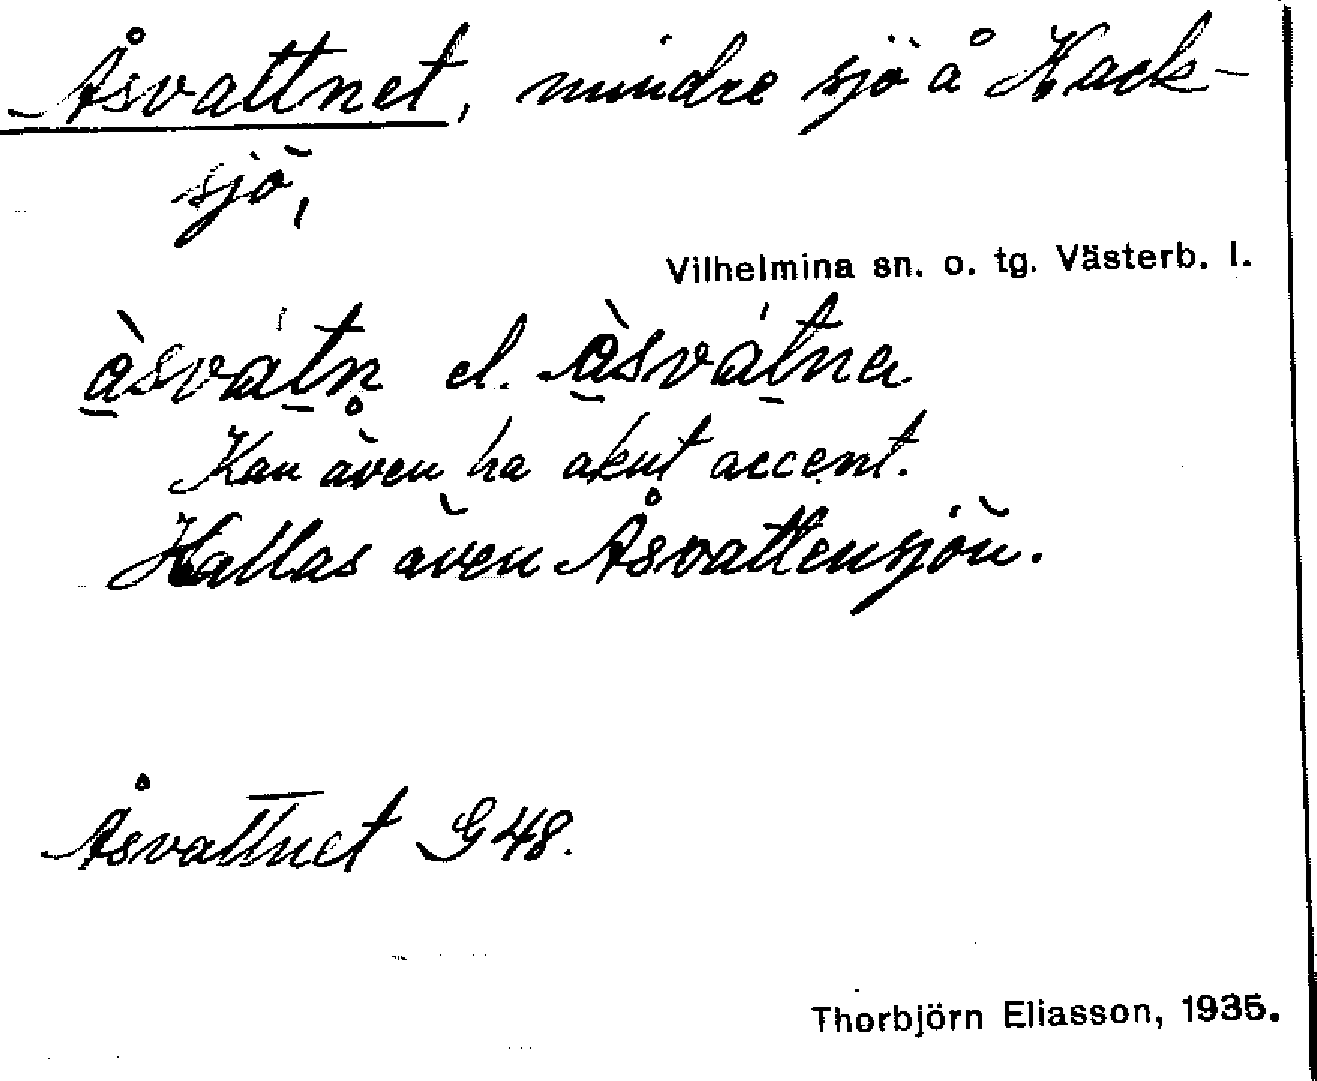 Åsvattnet, mindre sjö å Hack-
sjö,
Vilhelmina sn. o. tg. Västerb. l.
à̱sváṯn̥ el. à̱svá̱tna
Kan även ha akut accent.
Kallas även Åsvattensjön.
Åsvattnet G48.
Thorbjörn Eliasson, 1935.